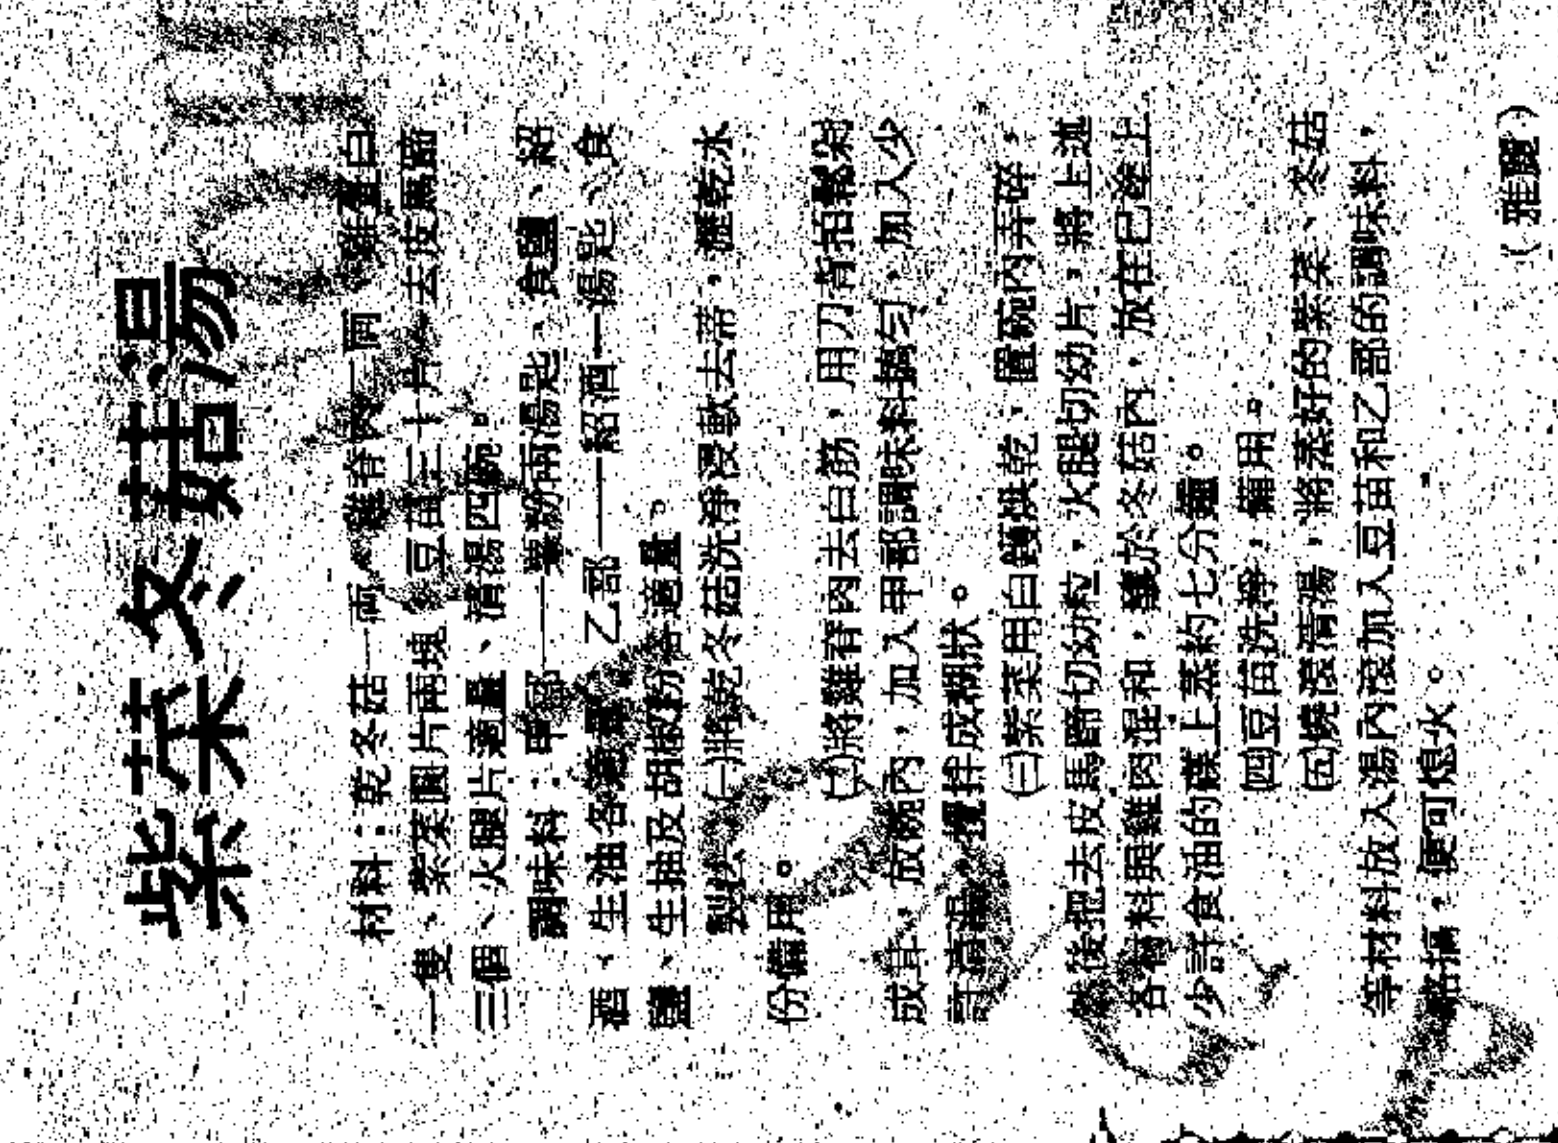 紫菜冬菇湯
材料：乾冬菇一兩、雞脊肉一兩、雞蛋白
一隻、紫菜圓片兩塊、豆苗三十片、去皮馬蹄
三個、火腿片適量、清湯四碗。
調味料：甲部——粟粉兩湯匙、食鹽、紹
酒、生油各適量 乙部——紹酒一湯匙、食
鹽、生抽及胡椒粉各適量。
製法：㈠將乾冬菇洗淨浸軟去蒂，瀝乾水
份備用。
㈡將雞脊肉去白筋，用刀背拍鬆剁
成茸，放碗內，加入甲部調味料搞勻，加入少
許清湯，攪拌成糊狀。
㈢紫菜用白鑊烘乾，置碗內弄碎，
然後把去皮馬蹄切幼粒，火腿切幼片，將上述
各種料與雞肉混和，釀於冬菇內，放在已塗上
少許食油的碟上蒸約七分鐘。
㈣豆苗洗淨，備用。
㈤燒滾清湯，將蒸好的紫菜、冬菇
等材料放入湯內滾加入豆苗和乙部的調味料，
略搞，便可熄火。
（雅麗）